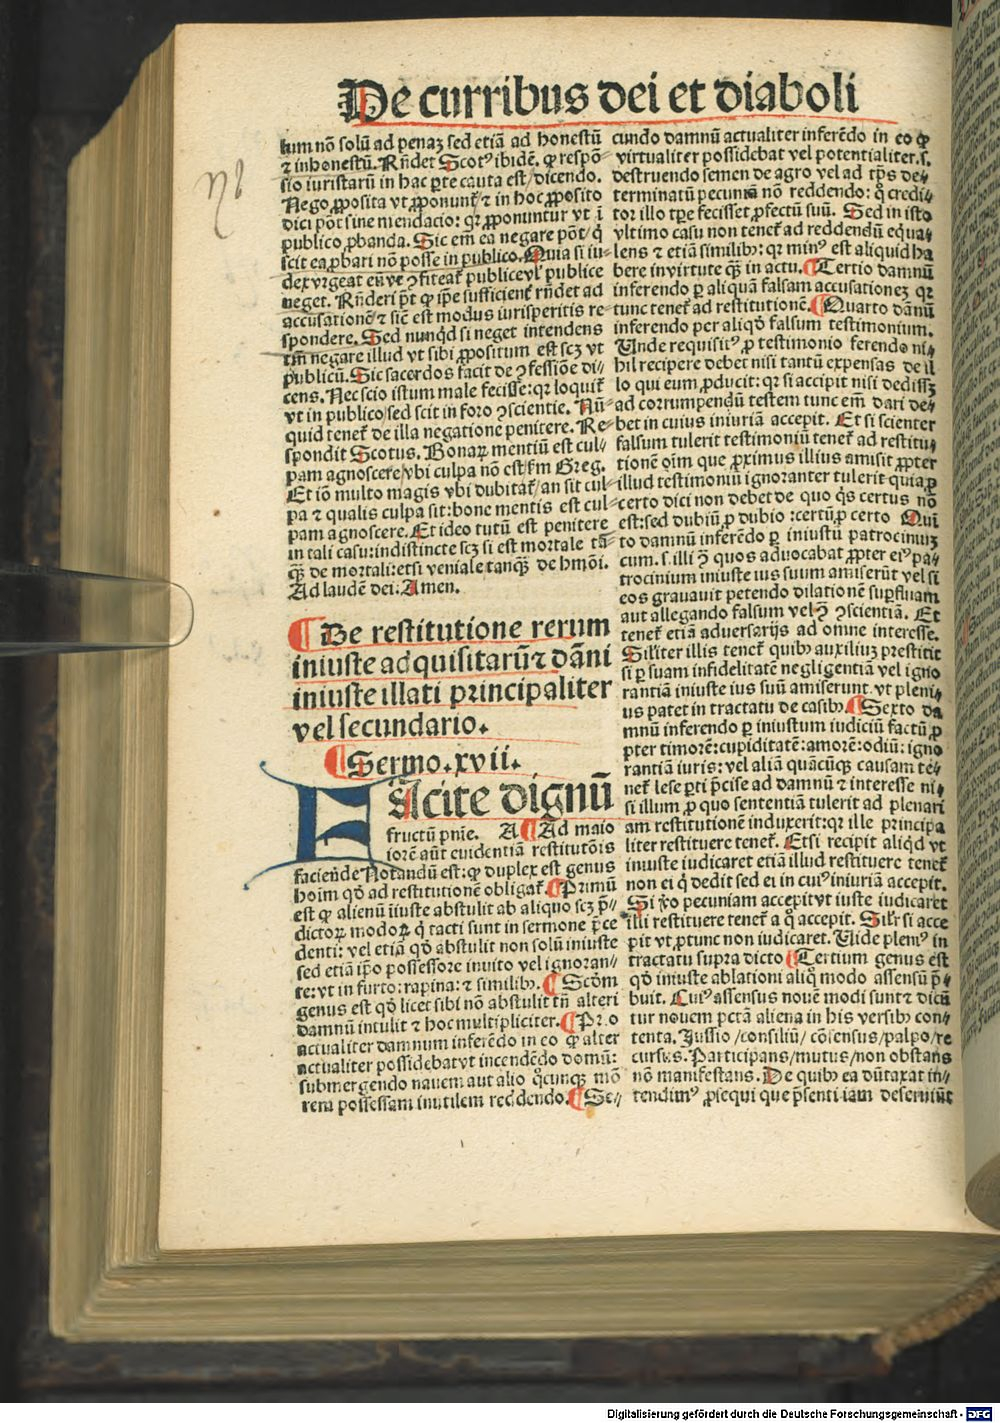 De curribus dei et diaboli
tum nõ solũ ad penaʒ sed etiã ad honestũ
⁊ inhonestũ. Rñdet Scotꝰ ibidẽ. ꝙ respõ⸗
sio iuristarũ in hac ꝑte cauta est/dicendo.
Nego ꝓposita vt ꝓponunt̃/⁊ in hoc ꝓposito
dici põt sine mendacio: qꝛ ꝓponuntur vt ĩ
publico ꝓbanda. Sic em̃ ea negare põt/q̇
scit ea ꝓbari nõ posse in publico. Quia si iu⸗
dex vrgeat
neget. Rñderi põt ꝙ ip̃e sufficient̃ rñdet ad
accusationẽ/⁊ siẽ est modus iurisperitis re⸗
spondere. Sed nunq̇d si neget intendens
tm̃ negare illud vt sibi ꝓpositum est scʒ vt
publicũ. Sic sacerdos facit de ↄfessiõe di⸗
cens. Nescio istum male fecisse: qꝛ loquit̃
vt in publico/sed scit in foro ↄscientie. Nũ⸗
quid tenet̃ de illa negatione penitere. Re⸗
spondit Scotus. Bonaꝝ mentiũ est cul⸗
pam agnoscere/vbi culpa nõ est/ẜm Greg.
Et iõ multo magis vbi dubitat̃/an sit cul⸗
pa ⁊ qualis culpa sit: bone mentis est cul⸗
pam agnoscere. Et ideo tutũ est penitere
in tali casu: indistincte scʒ si est mortale tã⸗
q̃ʒ de mortali: etsi veniale tanq̃ʒ de hmõi.
Ad laudẽ dei: Amen.
¶ De restitutione rerum
iniuste adquisitarũ ⁊ dãni
iniuste illati principaliter
vel secundario.
¶ Sermo. xvii.
FAcite dignũ
fructũ pnĩe. A ¶ Ad maio
iorẽ aũt euidentiã restitutõis
faciende Notandũ est: ꝙ duplex est genus
hoĩm qõ ad restitutionẽ obligat̃. ¶ Primũ
est ꝙ alienũ iiuste abstulit ab aliquo scʒ p̃⸗
dictoꝝ modoꝝ q̇ tacti sunt in sermone p̃ce
denti: vel etiã qõ abstulit non solũ iniuste
sed etiã ip̃o possessore inuito vel ignoran⸗
te: vt in furto: rapina: ⁊ similibꝰ. ¶ Scdm̃
genus est qõ licet sibi nõ abstulit tñ alteri
damnũ intulit ⁊ hoc multipliciter. ¶ Pr̃o
actualiter damnum inferẽdo in eo ꝙ alter
actualiter possidebat vt incendẽdo domũ:
submergendo nauem aut alio q̊cunqʒ mõ
rem possessam inutilem reddendo. ¶ Se⸗
cundo damnũ actualiter inferẽdo in eo ꝙ
virtualiter possidebat vel potentialiter. s.
destruendo semen de agro vel ad tp̃s de⸗
terminatũ pecuniã nõ reddendo: q̊ credi⸗
tor illo tpẽ fecisset ꝓfectũ suũ. Sed in isto
vltimo casu non tenet̃ ad reddendũ equa⸗
lens ⁊ etiã similibꝰ: qꝛ minꝰ est aliquid ha
bere in virtute q̃ʒ in actu. ¶ Tertio damnũ
inferendo ꝑ aliquã falsam accusationeʒ qꝛ
tunc tenet̃ ad restitutionẽ. ¶ Quarto dãnũ
inferendo per aliqõ falsum testimonium.
Unde requisitꝰ ꝓ testimonio ferendo ni⸗
hil recipere debet nisi tantũ expensas de il
lo qui eum ꝓducit: qꝛ si accipit nisi dedissʒ
ad corrumpendũ testem tunc em̃ dari de⸗
bet in cuius iniuriã accepit. Et si scienter
falsum tulerit testimoniũ tenet̃ ad restitu⸗
tionẽ oĩm que ꝓximus illius amisit ꝓpter
illud testimoniũ ignoranter tulerit quia ꝓ
certo dici non debet de quo q̇s certus nõ
est: sed dubiũ ꝓ dubio: certũ ꝓ certo Quĩ
to damnũ inferẽdo ꝑ iniustũ patrociniuʒ
cum. s. illi ↄ̃ quos aduocabat ꝓpter eiꝰ pa⸗
trocinium iniuste ius suum amiserũt vel si
eos grauauit petendo dilationẽ suꝑfluam
aut allegando falsum vel ↄ̃ ↄscientiã. Et
tenet̃ etiã aduersarijs ad omne interesse.
Siliter illis tenet̃ quibꝰ auxiliuʒ prestitit
si ꝑ suam infidelitatẽ negligentiã vel igno
rantiã iniuste ius suũ amiserunt. vt pleni⸗
us patet in tractatu de casibꝰ. ¶ Sexto da
mnũ inferendo ꝑ iniustum iudiciũ factũ ꝓ
pter timorẽ: cupiditatẽ: amorẽ: odiũ: igno
rantiã iuris: vel aliã quãcũqʒ causam te⸗
net̃ lese ꝑti p̃cise ad damnũ ⁊ interesse ni⸗
si illum ꝓ quo sententiã tulerit ad plenari
am restitutionẽ induxerit: qꝛ ille principa
liter restituere tenet̃. Etsi recipit aliq̇d vt
iniuste iudicaret etiã illud restituere tenet̃
non ei q̇ dedit sed ei in cuiꝰ iniuriã accepit.
Si ṽo pecuniam accepit vt iuste iudicaret
illi restituere tenet̃ a q̊ accepit. Silr̃ si acce
pit vt ꝓtunc non iudicaret. Uide plenꝰ in
tractatu supra dicto ¶ Tertium genus est
qõ iniuste ablationi aliq̊ modo assensũ p̃⸗
buit. Cuiꝰ assensus nouẽ modi sunt ⁊ dicũ
tur nouem pctã aliena in his versibꝰ con⸗
tenta. Jussio/consiliũ/cõsensus/palpo/re
cursus. Participans/mutus/non obstans
nõ manifestans. De quibꝰ ea dũtaxat in⸗
tendimꝰ ꝓsequi que p̃senti iam deseruiũt
Digitalisierung gefördert durch die Deutsche Forschungsgemeinschaft - DFG